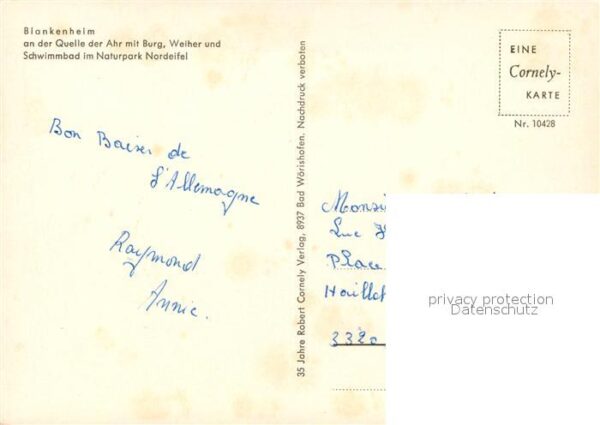 Blankenheim
an der Quelle der Ahr mit Burg, Weiher und
Schwimmbad im Naturpark Nordeifel
Bon Baiser de
l'Allemagne
Raymond
Annie.
35 Jahre Robert Cornely Verlag, 8937 Bad Wörishofen. Nachdruck verboten
EINE
Cornely-
KARTE
Nr. 10428
Luc
Place
3320
privacy protection
Datenschutz